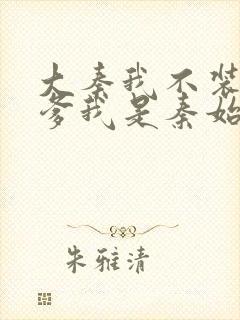 大秦我不装
爹我是秦始
朱雅清